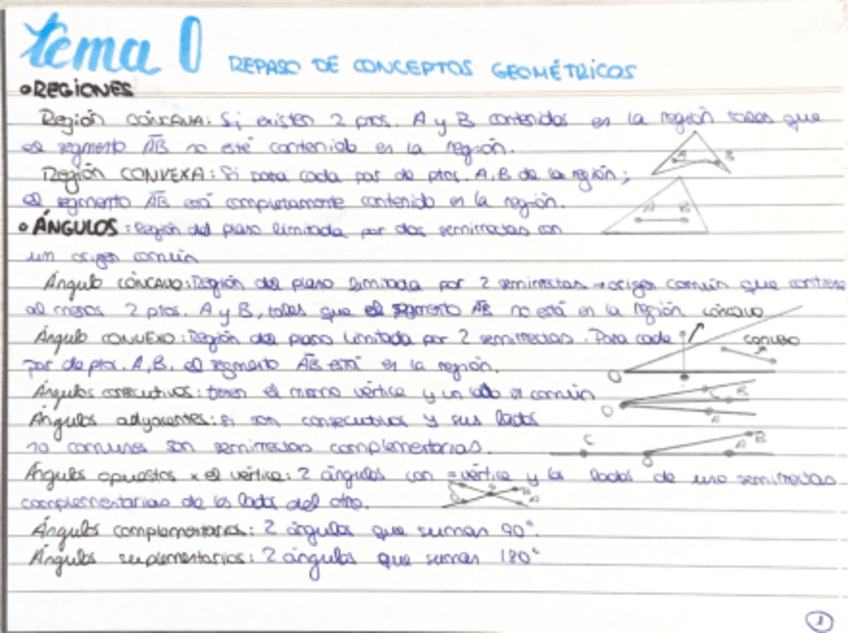 tema 0 REPASO DE CONCEPTOS GEOMÉTRICOS
• REGIONES
Región CÓNCAVA: Si existen 2 ptos. A y B contenidos en la región tales que
el segmento AB no esté contenido en la región.
A B
Región CONVEXA: Si para cada par de ptos. A, B de la región;
el segmento AB está completamente contenido en la región.
A B
• ÁNGULOS: Región del plano limitada por dos semirrectas con
un origen común
Ángulo CÓNCAVO: Región del plano limitada por 2 semirrectas → origen común que contiene
al menos 2 ptos. A y B, tales que el segmento AB no está en la región cóncavo
Ángulo CONVEXO: Región del plano limitada por 2 semirrectas. Para cada convexo
par de ptos. A, B, el segmento AB está en la región.
O
Ángulos consecutivos: tienen el mismo vértice y un lado en común
O C B A
Ángulos adyacentes: si son consecutivos y sus lados
no comunes son semirrectas complementarias.
C O A B
Ángulos opuestos x el vértice: 2 ángulos con = vértice y los lados de uno semirrectas
complementarias de los lados del otro.
Ángulos complementarios: 2 ángulos que suman 90°.
Ángulos suplementarios: 2 ángulos que suman 180°
1